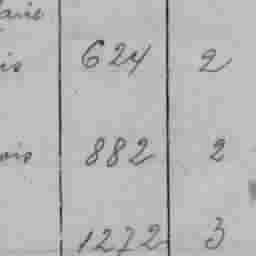 aire
is 624 2
ois 882 2
1272 3